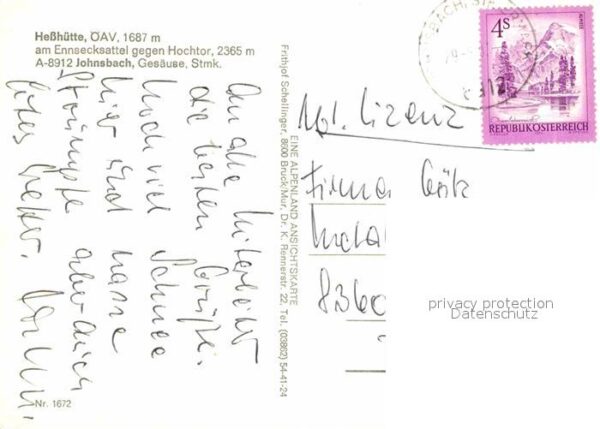 Heßhütte, ÖAV, 1687 m
am Ennsecksattel gegen Hochtor, 2365 m
A-8912 Johnsbach, Gesäuse, Stmk.
An alle Mitarbeiter
die besten Grüße.
Noch viel Schnee
hier und nasse
Strümpfe aber auch
Nr. 1672
EINE ALPENLAND ANSICHTSKARTE
Frithjof Schellinger, 8600 Bruck/Mur, Dr. K. Rennerstr. 22, Tel. (03862) 54-41-24
4s
ALMSEE
REPUBLIK ÖSTERREICH
Firma Götz
8360
privacy protection
Datenschutz